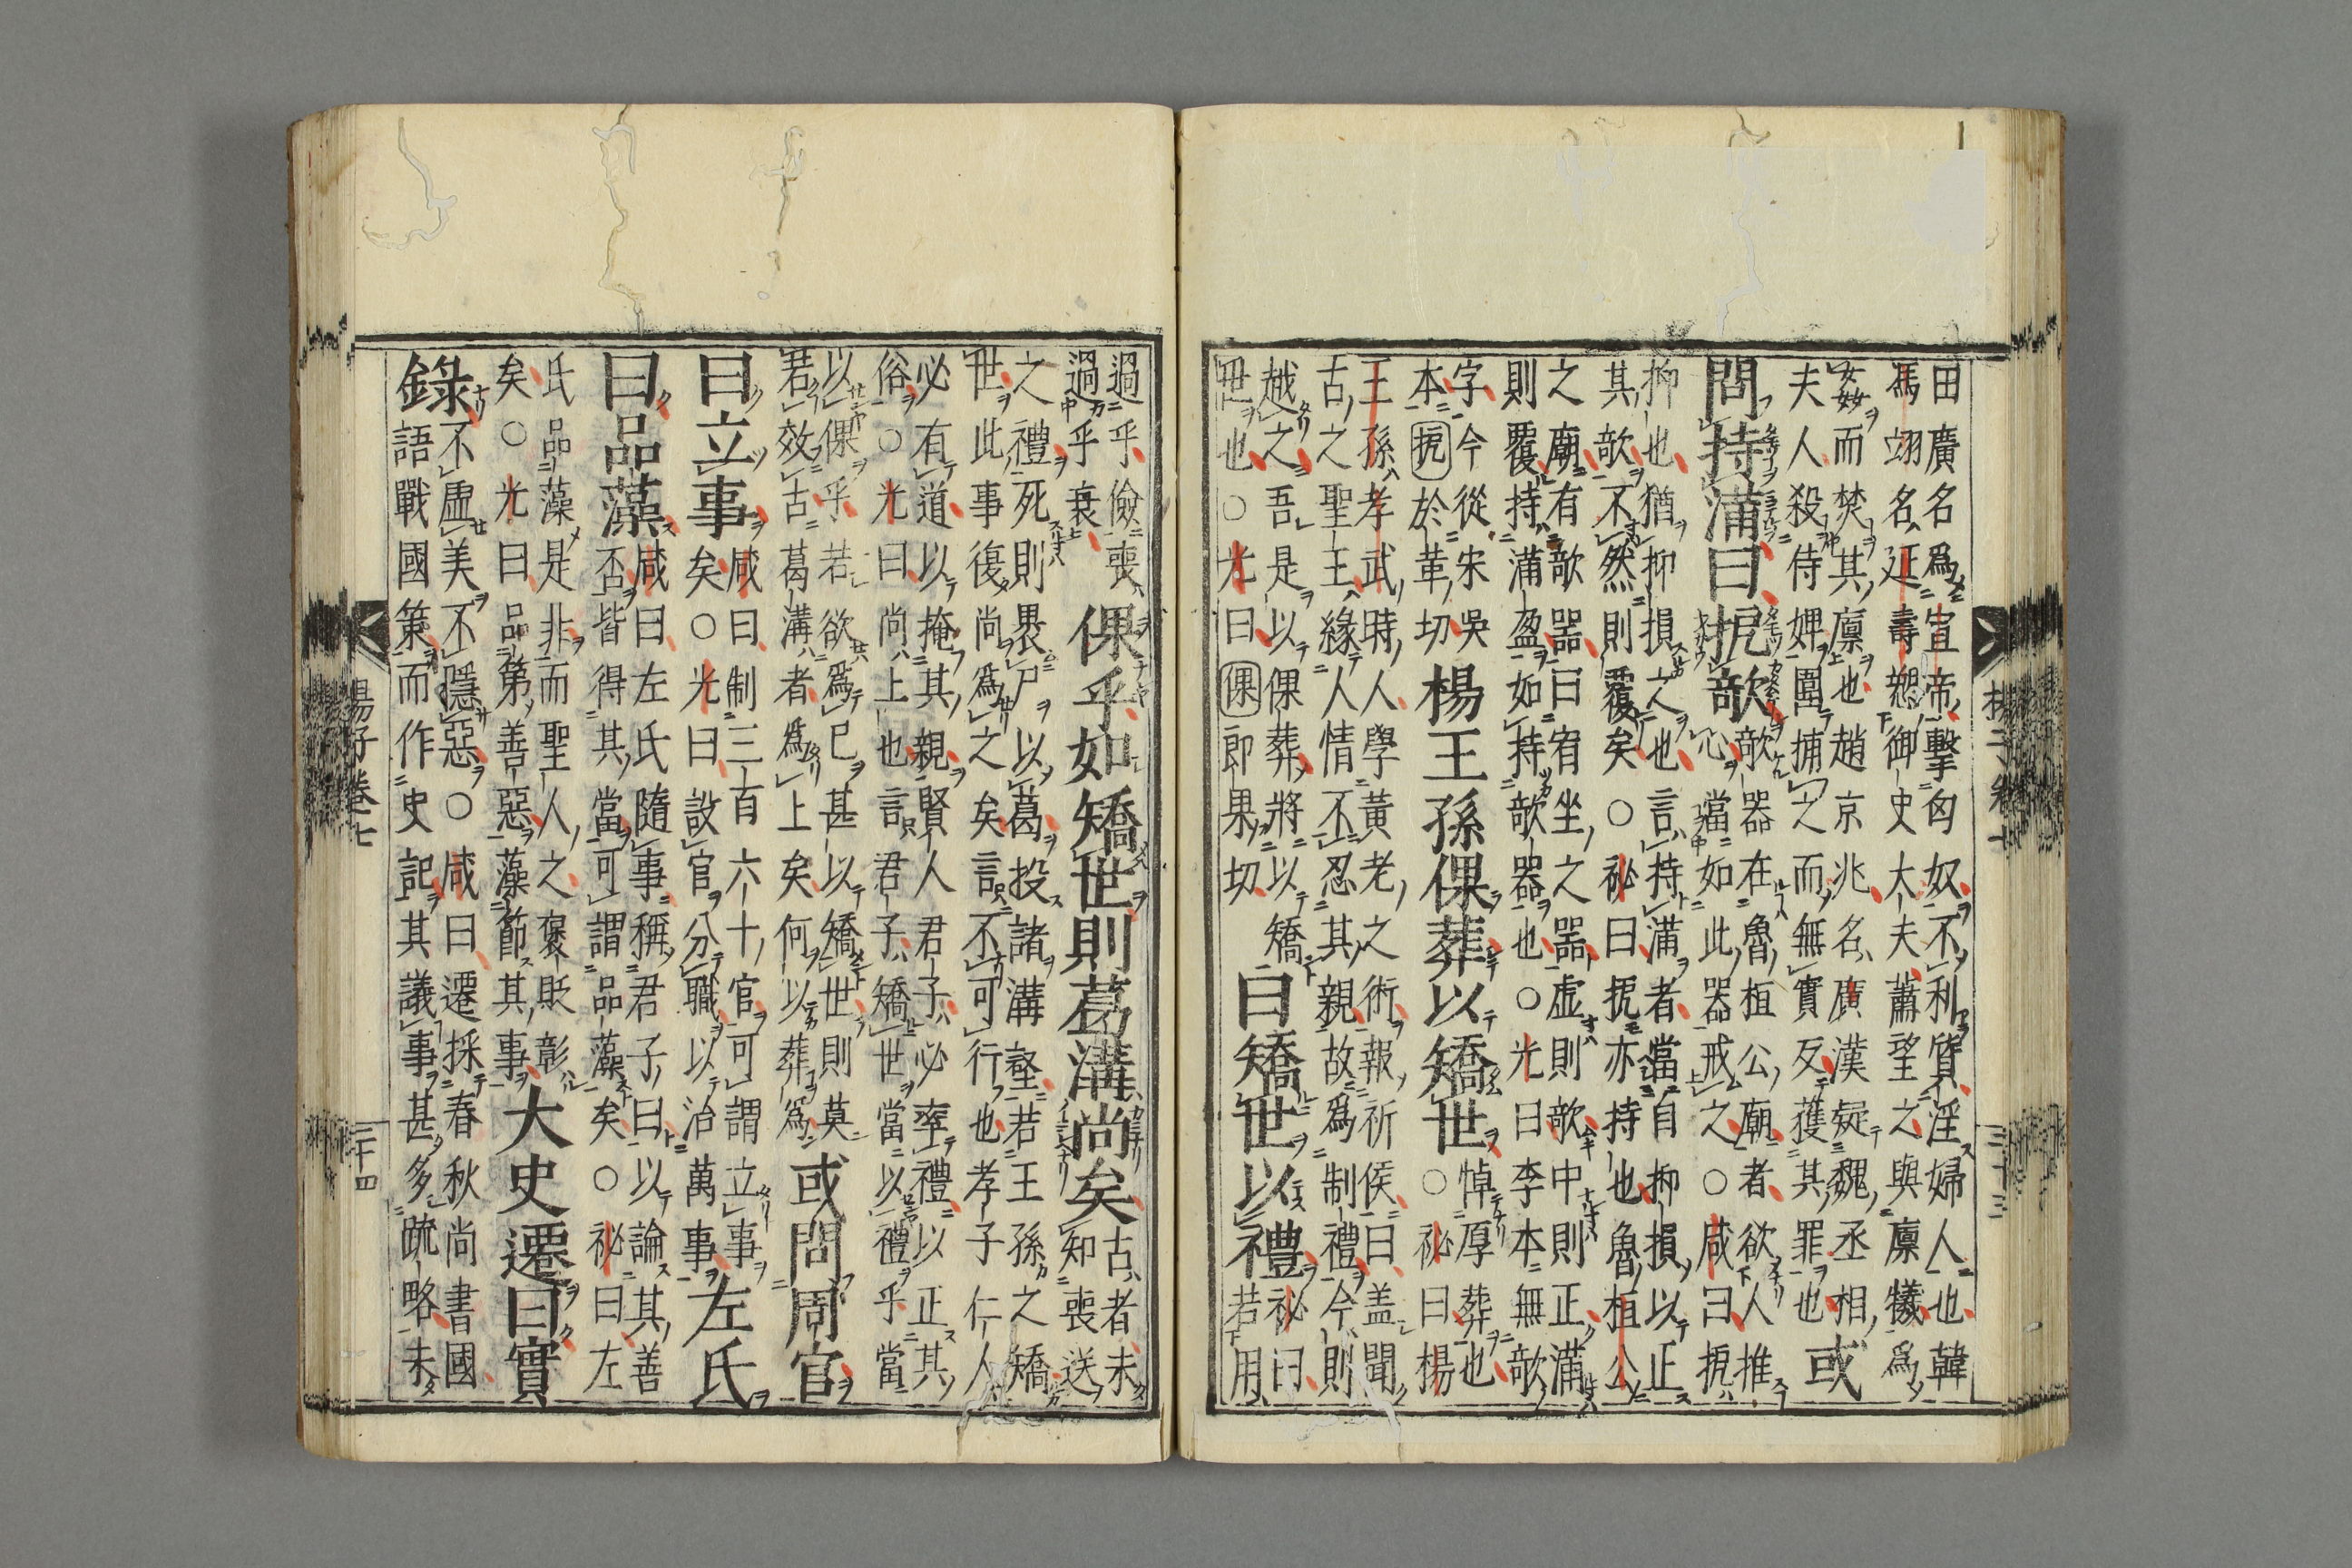 田廣名爲宣帝擊匈奴不利質淫婦人也韓
馮翊名延壽愬御史大夫蕭望之與廩犧爲
姦而焚其廩也趙京兆名廣漢疑魏丞相
夫人殺侍婢圍捕之而無實反獲其罪也
或
問持滿曰扼欹
欹器在魯桓公廟者欲人推
心當如此器戒之○咸曰扼
抑也猶抑損之也言持滿者當自抑損以正
其欹不然則覆矣○祕曰扼亦持也魯桓公
之廟有欹器曰宥坐之器虛則欹中則正滿
則覆持滿盈如持欹器也○光曰李本無欹
字今從宋吳
本扼於革切
楊王孫倮葬以矯世
悼厚葬也
○祕曰楊
王孫孝武時人學黃老之術報祈侯曰盖聞
古之聖王緣人情不忍其親故爲制禮今則
越之吾是以倮葬將以矯
世也○光曰倮卽果切
曰矯世以禮
祕曰
若用
三十三
過乎儉喪
過乎衰
倮乎如矯世則葛溝尚矣
古者未
知喪送
之禮死則畏尸以葛投諸溝壑若王孫之矯
世此事復尚爲之矣言不可行也孝子仁人
必有道以掩其親賢人君子必率禮以正其
俗○光曰尚上也言君子矯世當以禮乎當
以倮乎若欲爲已甚以矯世則莫
君效古葛溝者爲上矣何以葬爲
或問周官
曰立事
咸曰制三百六十官可謂立事
矣○光曰設官分職以治萬事
左氏
曰品藻
咸曰左氏隨事稱君子曰以論其善
否皆得其當可謂品藻矣○祕曰左
氏品藻是非而聖人之褒貶彰
矣○光曰品第善惡藻節其事
大史遷曰實
錄
不虛美不隱惡○咸曰遷採春秋尚書國
語戰國策而作史記其議事甚多疏略未
楊子卷七
三十四